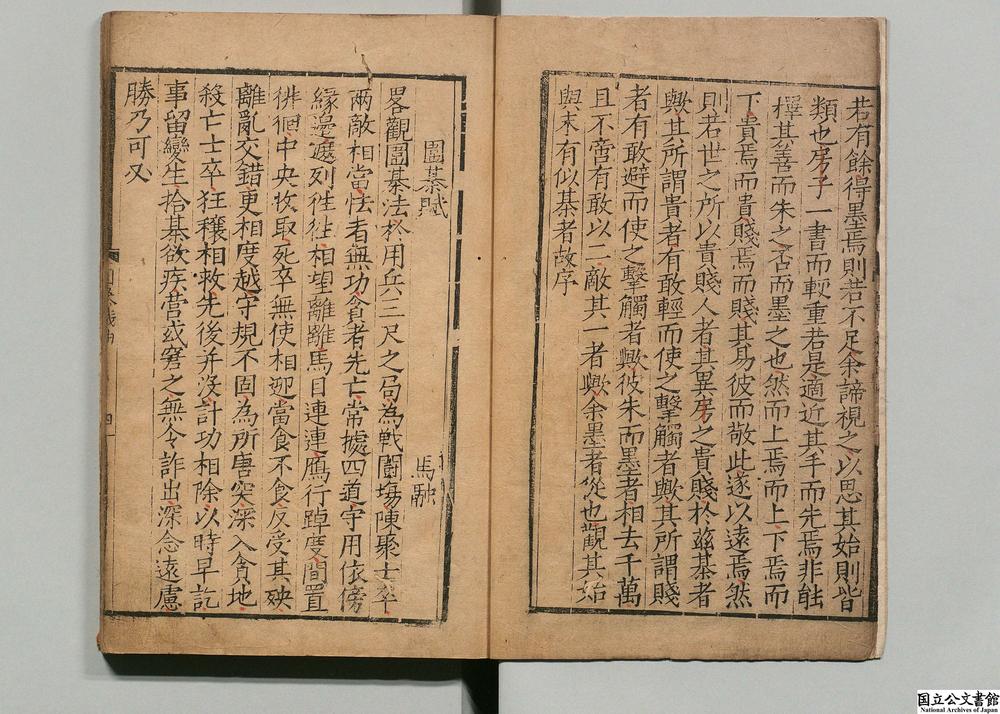 若有餘得墨焉則若不足余諦視之以思其始則皆
類也房子一書而輕重若是適近其手而先焉非能
擇其善而朱之否而墨之也然而上焉而上下焉而
下貴焉而貴賤焉而賤其易彼而敬此遂以遠焉然
則若世之所以貴賤人者其異房之貴賤於茲棊者
歟其所謂貴者有敢輕而使之擊觸者歟其所謂賤
者有敢避而使之擊觸者歟彼朱而墨者相去千萬
且不啻有敢以二敵其一者歟余墨者從也觀其始
與末有似棊者故序
圍棊賦
馬融
畧觀圍棊法於用兵三尺之局為戰鬬塲陳聚士卒
兩敵相當怯者無功貪者先亡常據四道守用依傍
緣邊遮列徃徃相望離離馬目連連鴈行踔度間置
徘徊中央收取死卒無使相迎當食不食反受其殃
離亂交錯更相度越守規不固為所唐突深入貪地
殺亡士卒狂穰相救先後并沒計功相除以時早訖
事留變生拾棊欲疾營或窘之無令詐出深念遠慮
勝乃可又
四
国立公文書館
National Archives of Japan